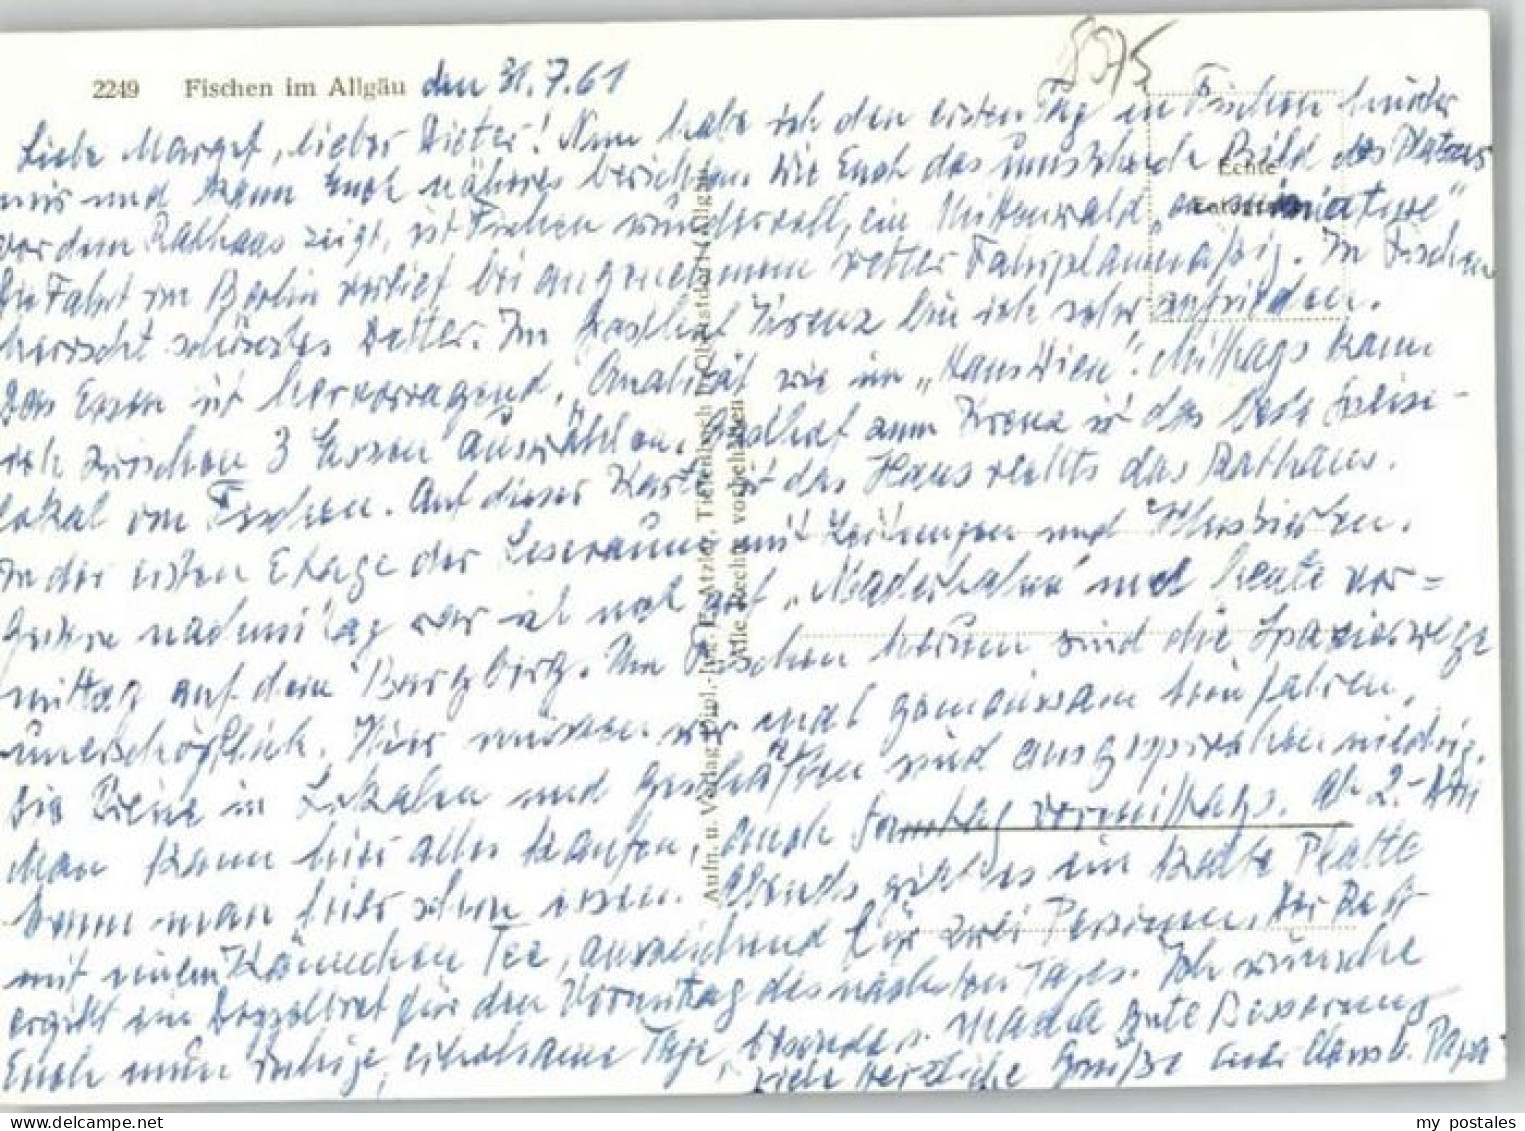 2249 Fischen im Allgäu den 31.7.61
8975
Liebe Margef, lieber Dieter! Nun habe ich den ersten Tag in Fischen hinter
mir und kann Euch näheres berichten. Wie Euch das umstehende Bild des Platzes
vor dem Rathaus zeigt, ist Fischen wundervoll, ein Mittenwald "en miniature"
Die Fahrt im Berlin verlief bei angenehmem Wetter Fahrplanmäßig. In Fischen
herrscht schönstes Wetter. Im Gasthof Krenz bin ich sehr zufrieden.
Das Essen ist hervorragend, Qualität wie im "Haus Wien". Mittags kann
ich zwischen 3 Essen auswählen. Gasthof zum Krenz ist das beste Speise-
lokal von Fischen. Auf dieser Karte ist das Haus rechts das Rathaus.
In der ersten Etage der Leseraum mit Zeitungen und
Gestern nachmittag war ich noch auf "Maderhalm" und heute vor=
mittag auf dem Burgbirg. Um Fischen herum sind die Spazierwege
unerschöpflich. Hier müssen wir mal gemeinsam hinfahren.
Die Preise in Lokalen und Geschäften sind ausgesprochen niedrig.
Man kann hier alles kaufen, auch Sonntag vormittags. Ab 2.- DM
kann man hier schon essen. Abends gibt es ein kalte Platte
mit einem Kännchen Tee, ausreichend für zwei Personen. Der Rest
ergibt ein Doppelbrot für den Vormittag des nächsten Tages. Ich wünsche
Euch nun ruhige, erholsame Tage, besonders gute Besserung
viele herzliche Grüße Papa
Echte
Aufn. u. Verlag Dipl.-Ing. E. Atzler, Tiefenbach b. Oberstdorf/Allgäu
Alle Rechte vorbehalten
my postales